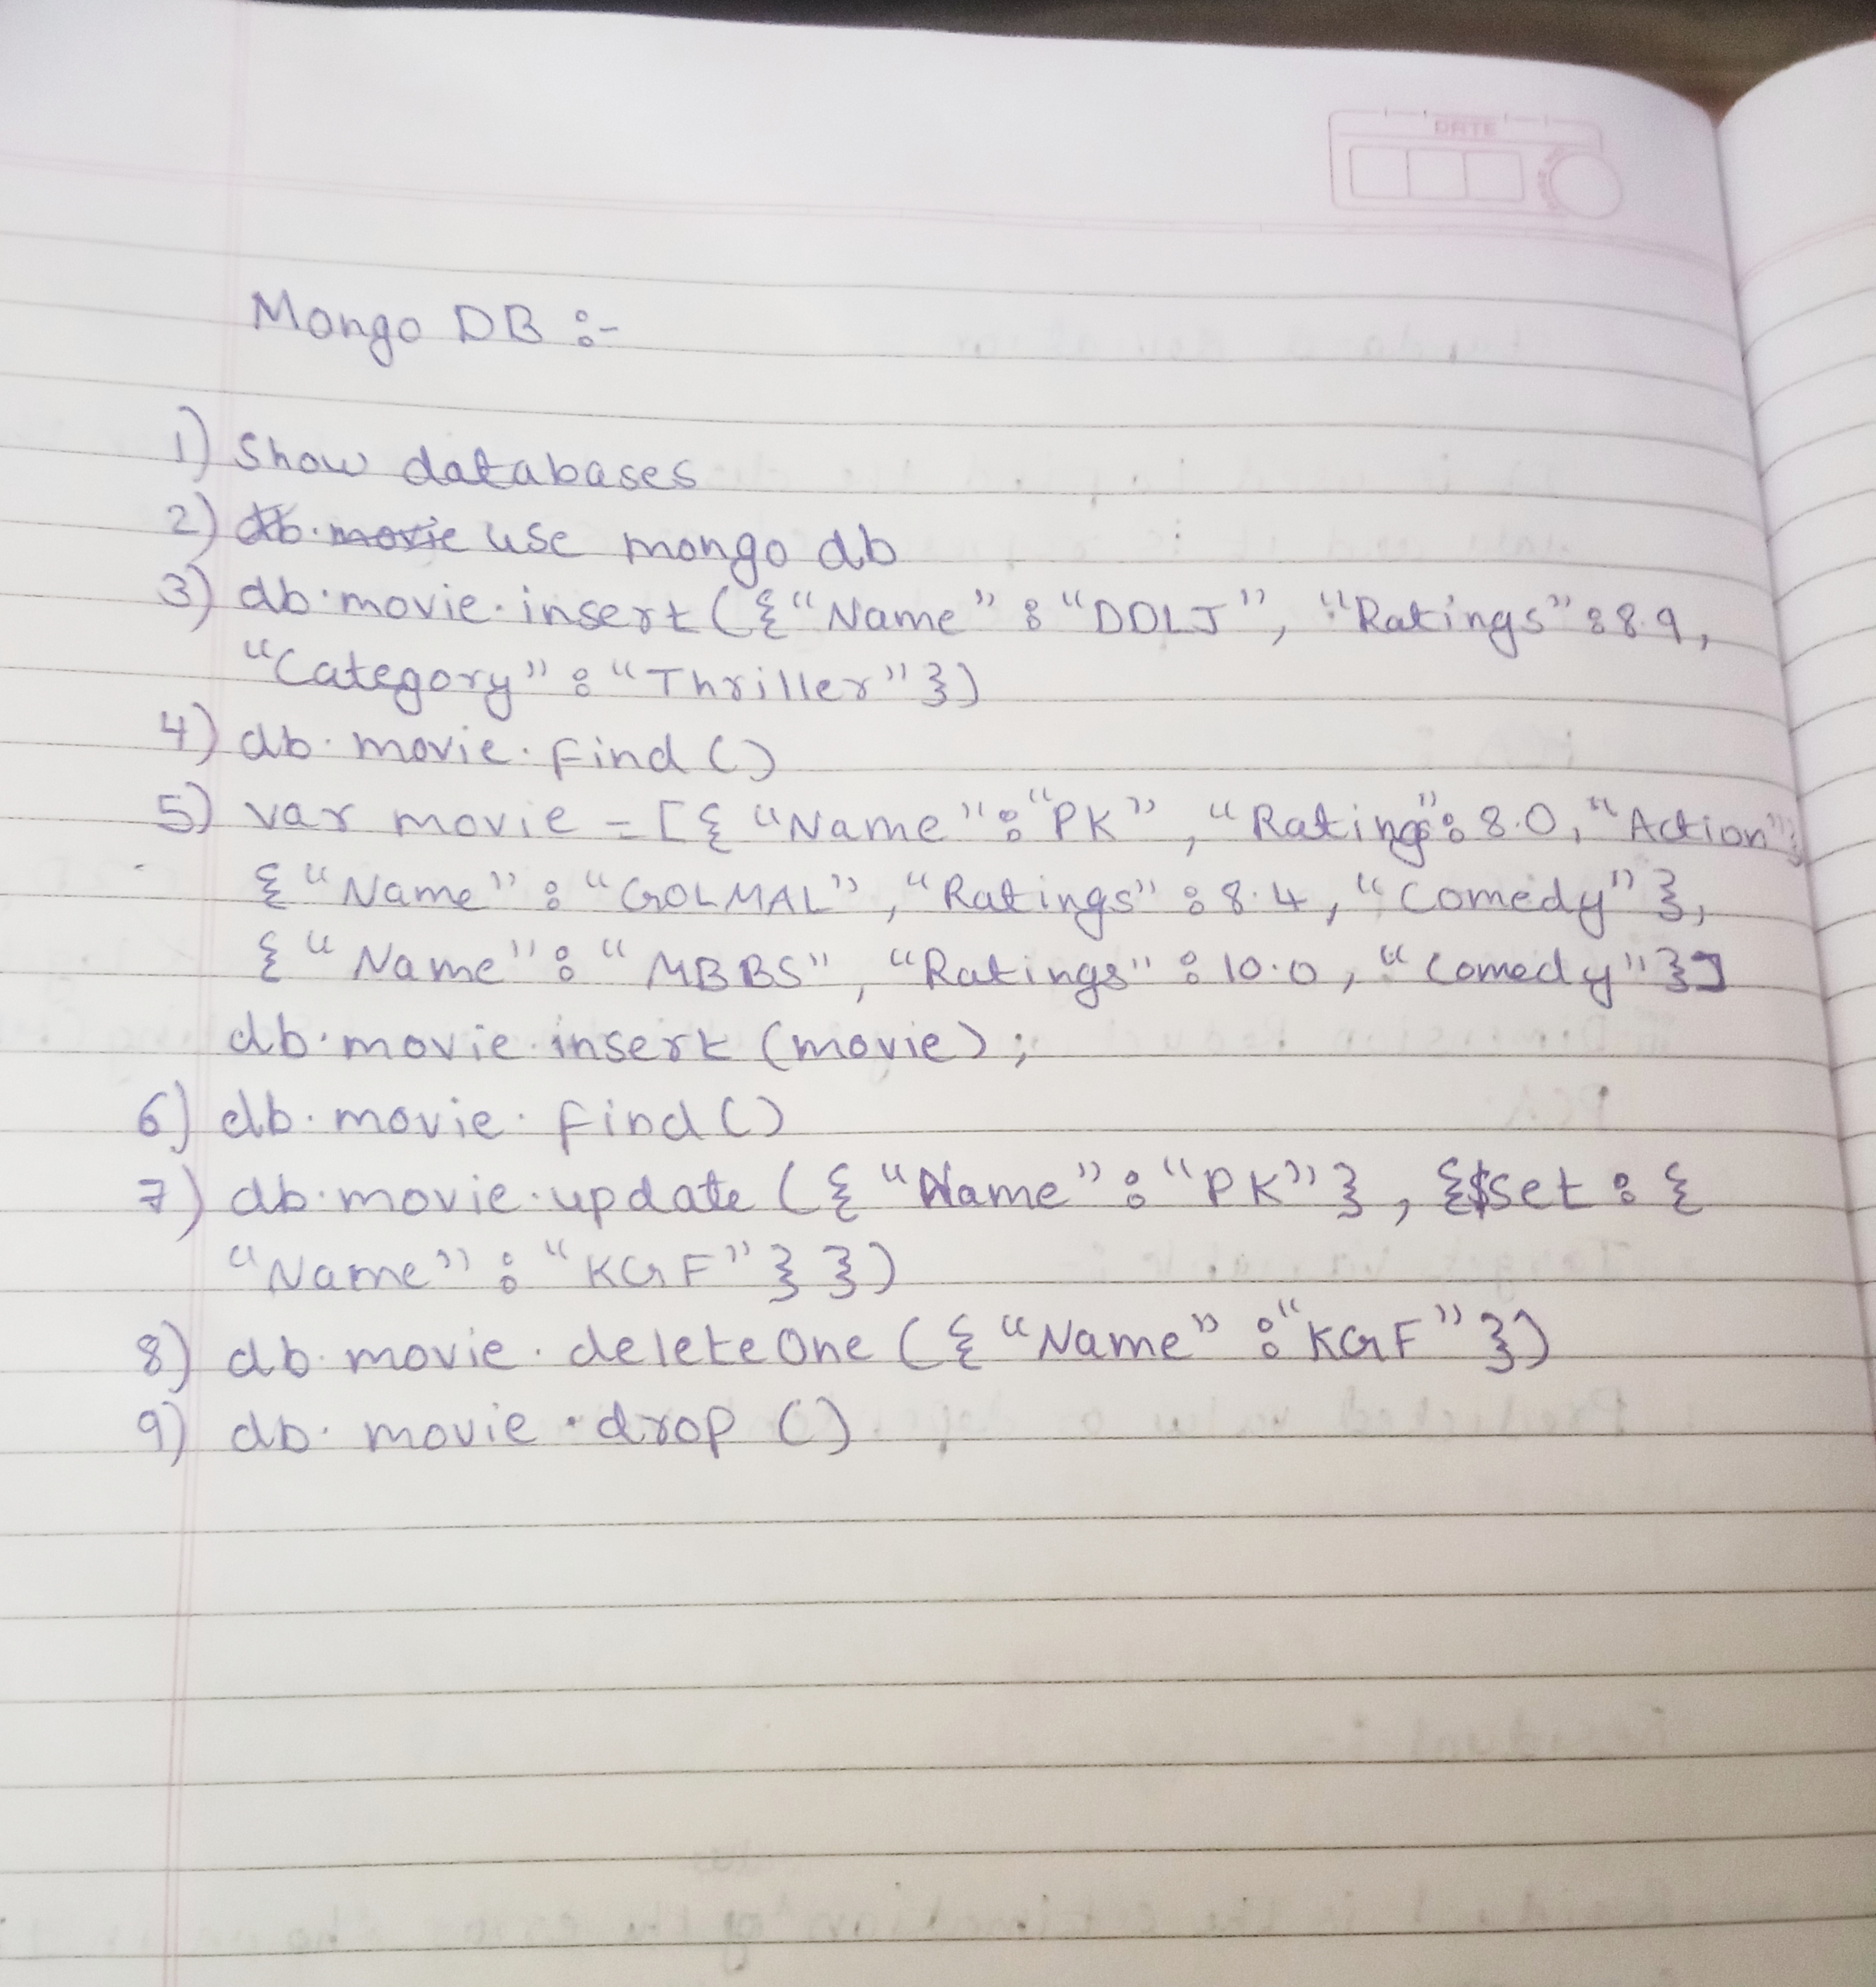 DATE
Mongo DB :-
1) Show databases
2) db.movie use mongo db
3) db.movie.insert({"Name" : "DDLJ", "Ratings" : 8.9,
"Category" : "Thriller"})
4) db.movie.find()
5) var movie = [{"Name" : "PK", "Rating" : 8.0, "Action"},
{"Name" : "GOLMAL", "Ratings" : 8.4, "Comedy"},
{"Name" : "MBBS", "Ratings" : 10.0, "Comedy"}]
db.movie.insert(movie);
6) db.movie.find()
7) db.movie.update({"Name" : "PK"}, {$set : {
"Name" : "KGF"}})
8) db.movie.deleteOne({"Name" : "KGF"})
9) db.movie.drop()